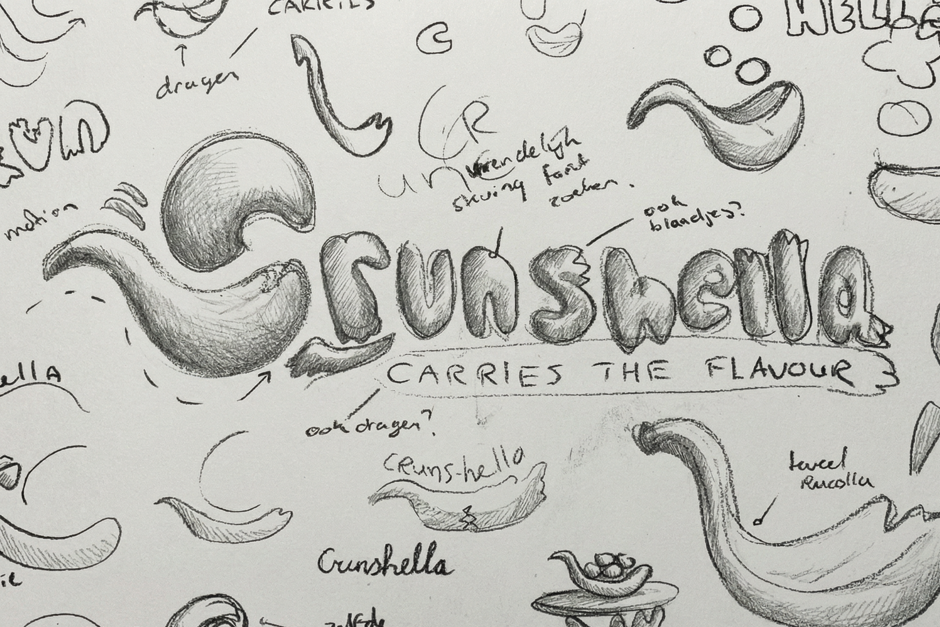 CARRIES
HELL
dragen
CR
un
vriendelijk
swing font
zoeken.
ook
blaadjes?
motion
Crunshella
CARRIES THE FLAVOUR
ella
ook dragen?
Cruns-hella
teveel
Rucolla
Crunshella